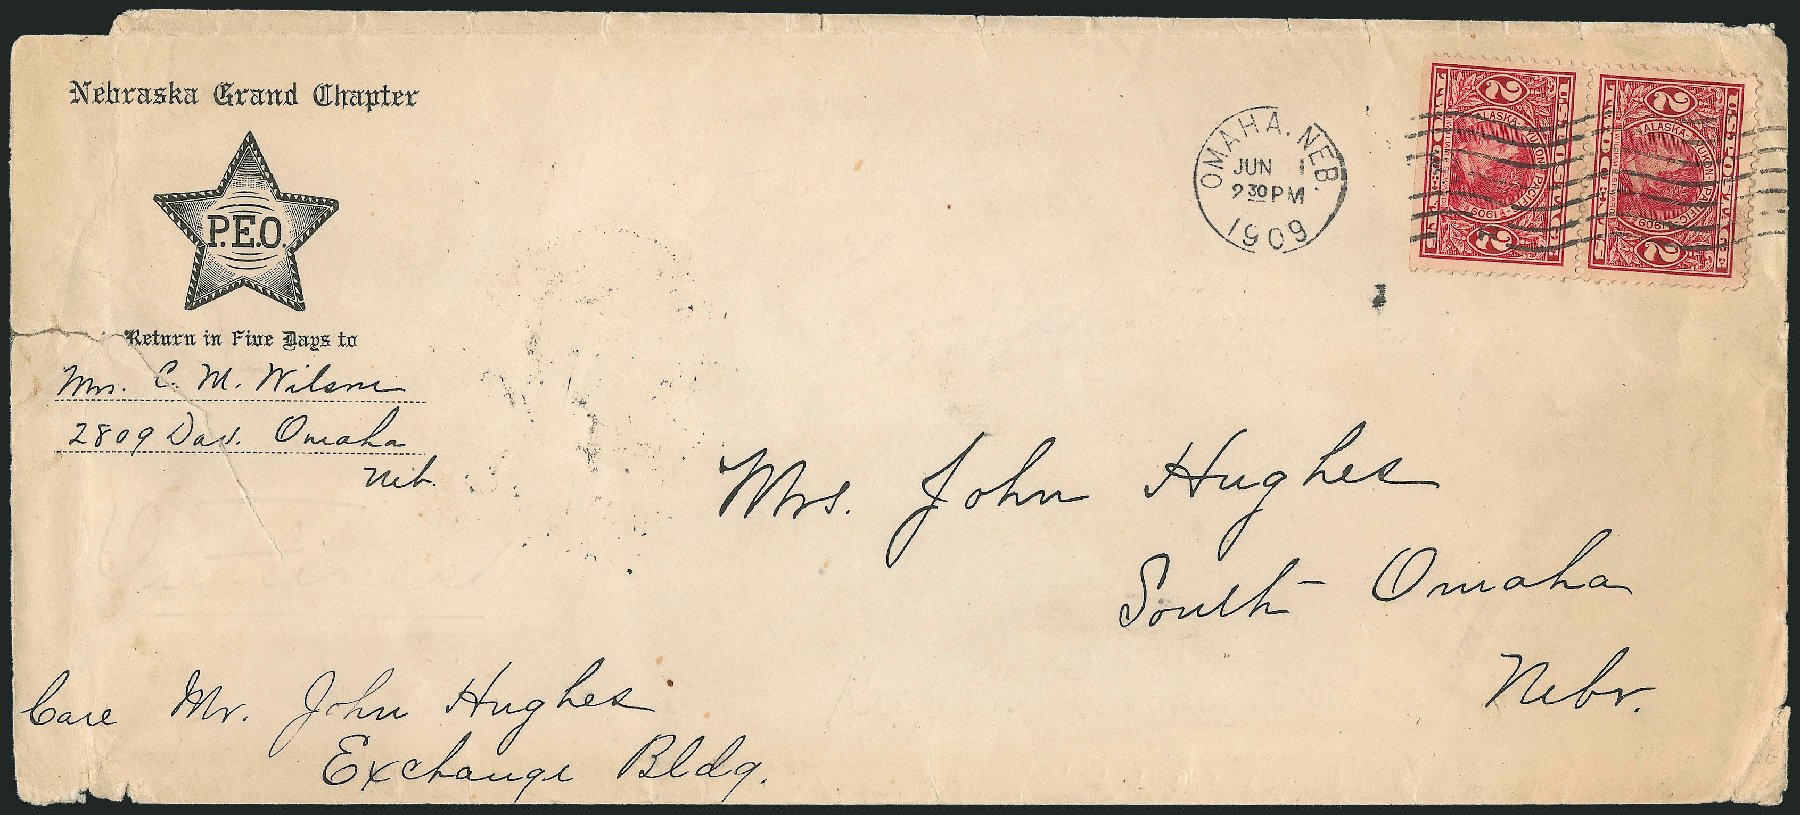 Nebraska Grand Chapter
P.E.O.
Return in Five Days to
Mrs. C. M. Wilson
2809 Dav. Omaha
Neb.
OMAHA, NEB.
JUN 1
2 30 PM
1909
2
ALASKA-YUKON-PACIFIC
1909
2
2
ALASKA-YUKON-PACIFIC
1909
2
Mrs. John Hughes
South Omaha
Nebr.
Care Mr. John Hughes
Exchange Bldg.